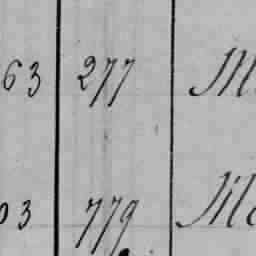 63 277 M
03 779 Ma